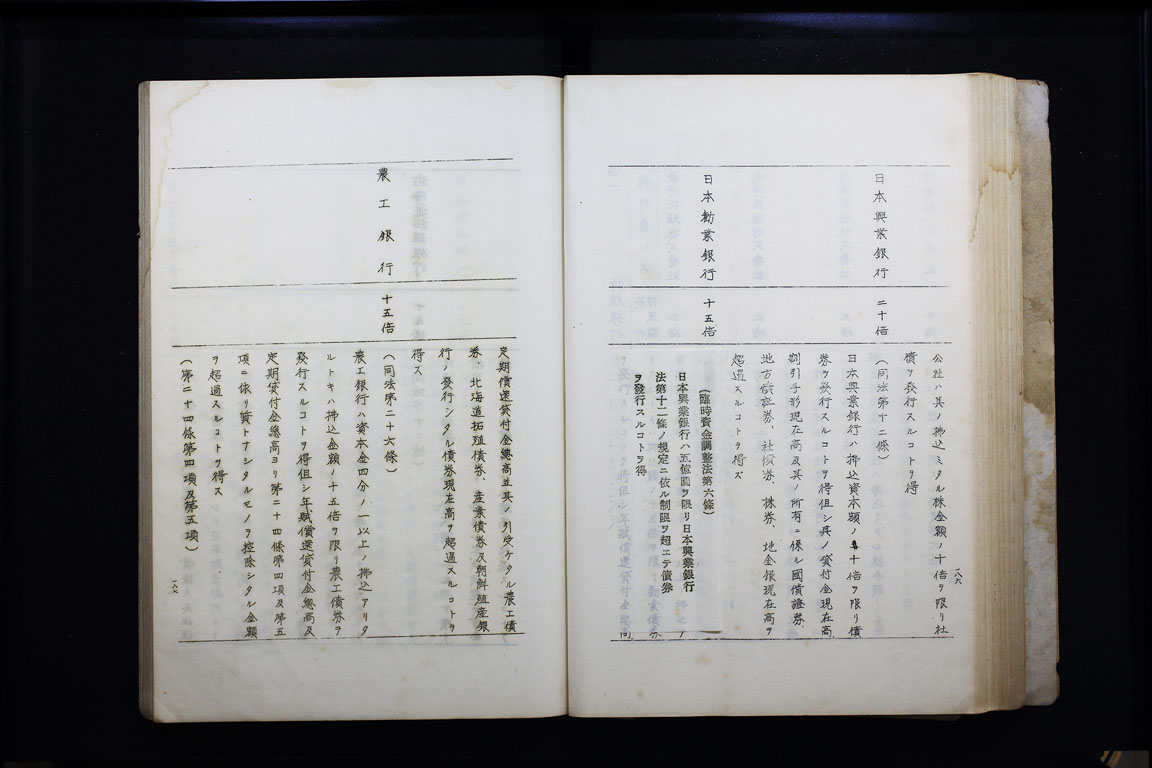 一八六
公社ハ其ノ拂込ミタル株金額ノ十倍ヲ限リ社
債ヲ發行スルコトヲ得
日本興業銀行
二十倍
(同法第十二條)
日本興業銀行ハ拂込資本額ノ十倍ヲ限リ債
券ヲ發行スルコトヲ得但シ其ノ貸付金現在高
割引手形現在高及其ノ所有ニ係ル國債證券、
地方債証券、社債券、株券、地金銀現在高ヲ
超過スルコトヲ得ズ
日本勧業銀行
十五倍
(臨時資金調整法第六條)
日本興業銀行ハ五億圓ヲ限リ日本興業銀行
法第十二條ノ規定ニ依ル制限ヲ超エテ債券
ヲ發行スルコトヲ得
定期償還貸付金總高並其ノ引受ケタル農工債
券、北海道拓殖債券、産業債券及朝鮮殖産銀
行ノ發行シタル債券現在高ヲ超過スルコトヲ
得ズ
農工銀行
十五倍
(同法第二十六條)
農工銀行ハ資本金四分ノ一以上ノ拂込アリタ
ルトキハ拂込金額ノ十五倍ヲ限リ農工債券ヲ
發行スルコトヲ得但シ年賦償還貸付金總高及
定期貸付金總高ヨリ第二十四條第四項及第五
項ニ依リ質トナシタルモノヲ控除シタル金額
ヲ超過スルコトヲ得ス
(第二十四條第四項及第五項)
一八七